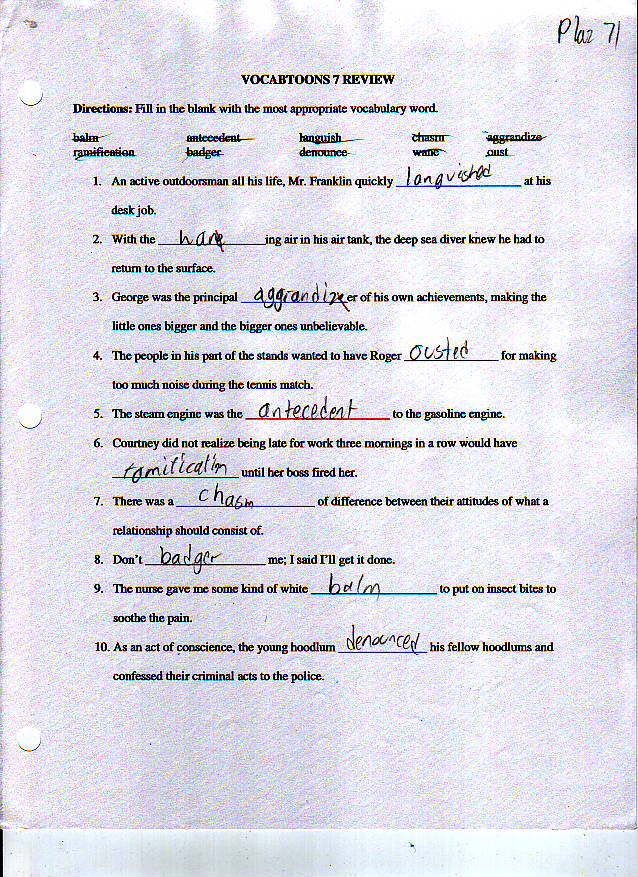 Plaz 71
VOCABTOONS 7 REVIEW
Directions: Fill in the blank with the most appropriate vocabulary word.
balm antecedent languish chasm aggrandize
ramification badger denounce wane oust
1. An active outdoorsman all his life, Mr. Franklin quickly languished at his
desk job.
2. With the wane ing air in his air tank, the deep sea diver knew he had to
return to the surface.
3. George was the principal aggrandize er of his own achievements, making the
little ones bigger and the bigger ones unbelievable.
4. The people in his part of the stands wanted to have Roger ousted for making
too much noise during the tennis match.
5. The steam engine was the antecedent to the gasoline engine.
6. Courtney did not realize being late for work three mornings in a row would have
ramification until her boss fired her.
7. There was a chasm of difference between their attitudes of what a
relationship should consist of.
8. Don't badger me; I said I'll get it done.
9. The nurse gave me some kind of white balm to put on insect bites to
soothe the pain.
10. As an act of conscience, the young hoodlum denounced his fellow hoodlums and
confessed their criminal acts to the police.